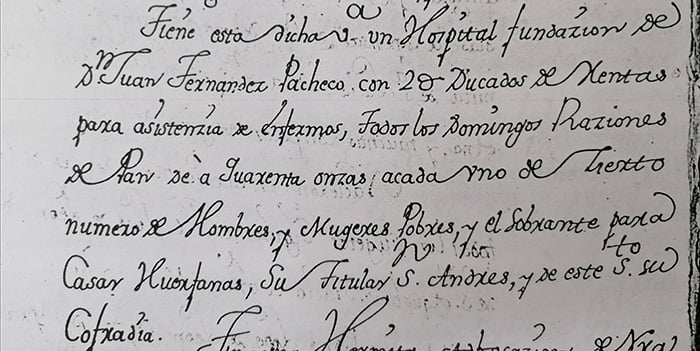 Tiene esta dicha v.ª un Hospital fundazion de
D.n Juan Fernandez Pacheco con 2U Ducados de Rentas
para asistenzia de enfermos, Todos los Domingos Raziones
de Pan de à Quarenta onzas, acada vno de Zierto
numero de Hombres, y Mugeres Pobres, y el sobrante para
Casar Huerfanas, Su Titular S. Andres, y de este S.to su
Cofradia.
de Nra